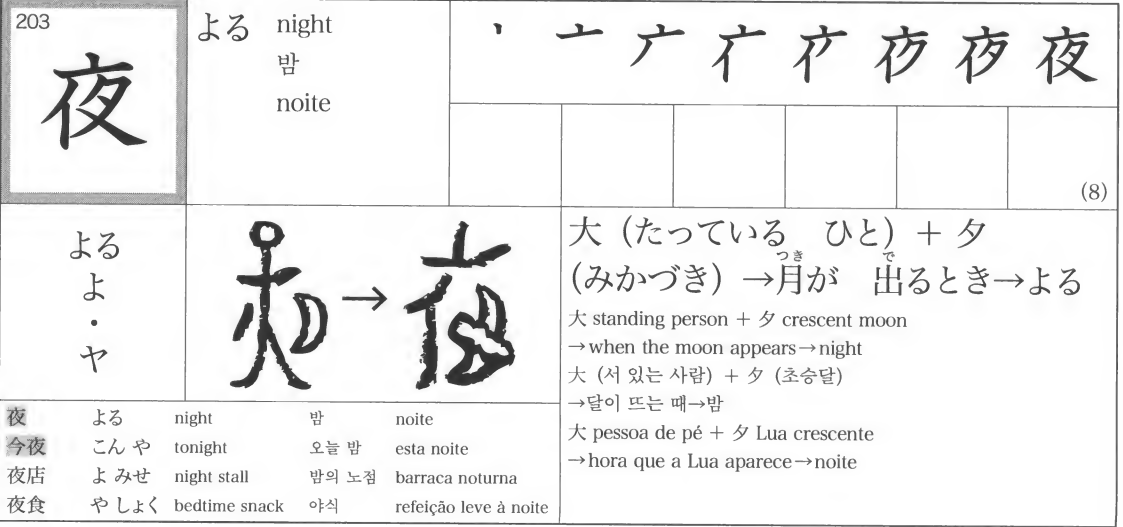 203
夜
よる night
밤
noite
丶 亠 夜
(8)
よる
よ
・
ヤ
→
大（たっている　ひと）＋夕
つき で
（みかづき）→月が　出るとき→よる
大 standing person + 夕 crescent moon
→when the moon appears→night
大 (서 있는 사람) + 夕 (초승달)
→달이 뜨는 때→밤
大 pessoa de pé + 夕 Lua crescente
→hora que a Lua aparece→noite
夜 よる night 밤 noite
今夜 こん や tonight 오늘 밤 esta noite
夜店 よ みせ night stall 밤의 노점 barraca noturna
夜食 や しょく bedtime snack 야식 refeição leve à noite